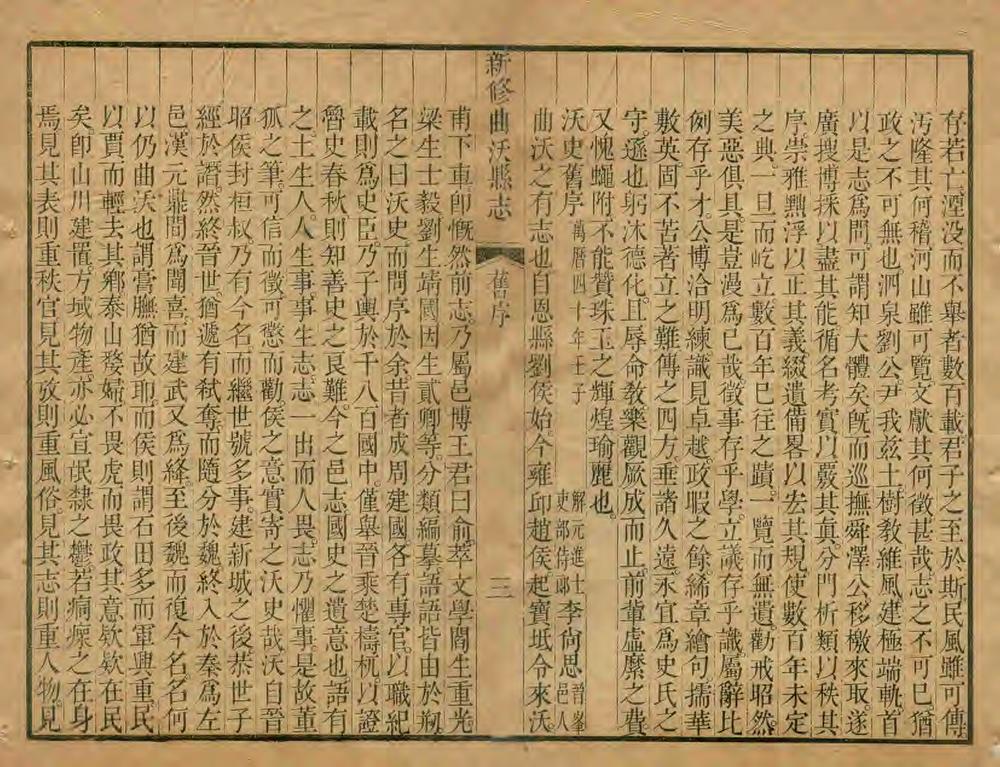 存若亡湮没而不舉者數百載君子之至於斯民風雖可傳
汚隆其何稽河山雖可覽文獻其何徵甚哉志之不可已猶
政之不可無也泗泉劉公尹我兹土樹教維風建極端軌首
以是志爲問可謂知大體矣旣而巡撫舜澤公移檄來取遂
廣搜博採以盡其能循名考實以覈其眞分門析類以秩其
序崇雅黜浮以正其義綴遺備畧以宏其規使數百年未定
之典一旦而屹立數百年已往之蹟一覽而無遺勸戒昭然
美惡俱具是豈漫爲已哉徵事存乎學立議存乎識屬辭比
例存乎才公博洽明練識見卓越政暇之餘絺章繪句擩華
敷英固不苦著立之難傳之四方垂諸久遠永宜爲史氏之
守遜也躬沐德化且辱命教樂觀厥成而止前輩虛縻之費
又愧蠅附不能贊珠玉之輝煌瑜麗也
沃史舊序 萬曆四十年壬子 解元進士吏部侍郎李尙思晉峯邑人
曲沃之有志也自恩縣劉侯始今雍邱趙侯起寶坻令來沃
新修曲沃縣志 舊序 三
甫下車卽慨然前志乃屬邑博王君曰俞萃文學閻生重光
梁生士毅劉生靖國因生貳卿等分類編摹語語皆由於剏
名之曰沃史而問序於余昔者成周建國各有專官以職紀
載則爲史臣乃子輿於千八百國中僅舉晉乘楚檮杌以證
魯史春秋則知善史之良難今之邑志國史之遺意也語有
之土生人人生事事生志志一出而人畏志乃懼事是故董
狐之筆可信而徵可懲而勸侯之意實寄之沃史哉沃自晉
昭侯封桓叔乃有今名而繼世號多事建新城之後恭世子
經於譖然終晉世猶遞有弑奪而隨分於魏終入於秦爲左
邑漢元鼎間爲聞喜而建武又爲絳至後魏而復今名名何
以仍曲沃也謂膏膴猶故耶而侯則謂石田多而軍興重民
以賈而輕去其鄕泰山嫠婦不畏虎而畏政其意欵欵在民
矣卽山川建置方域物產亦必宣氓隸之鬱若痌瘝之在身
焉見其表則重秩官見其攷則重風俗見其志則重人物見